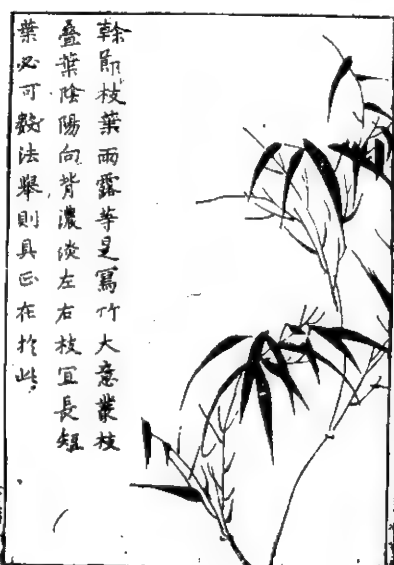 幹節枝葉雨露等是寫竹大意叢枝
疊葉陰陽向背濃淡左右枝宜長短
葉必可數法舉則具正在於此